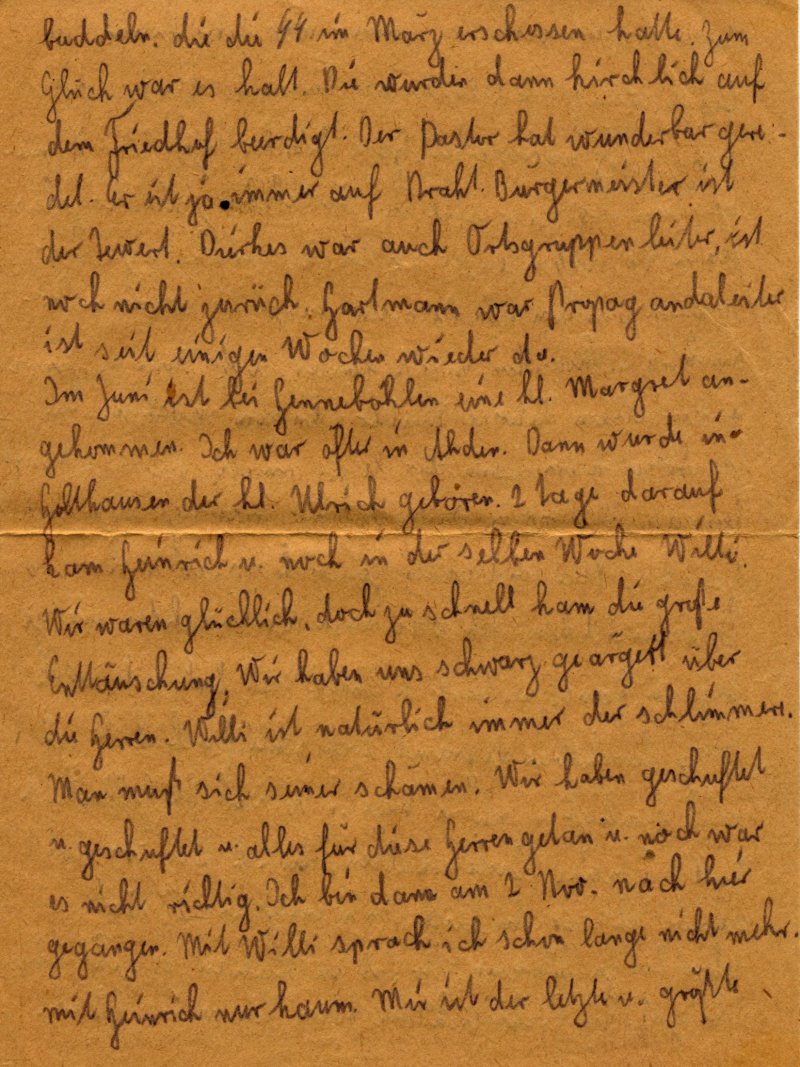 buddeln. die die SS im März erschossen hatte. Zum
Glück war es kalt. Die wurden dann kirchlich auf
dem Friedhof beerdigt. Der Pastor hat wunderbar gere-
det. Er ist ja immer auf Draht. Bürgermeister ist
der Dierkes war auch Ortsgruppenleiter, ist
noch nicht zurück. Hartmann war Propagandaleiter
ist seit einigen Wochen wieder da.
Im Juni ist bei Henneböhlen eine kl. Margret an-
gekommen. Ich war öfter in Ahden. Dann wurde in
Holthausen der kl. Ulrich geboren. 2 Tage darauf
kam Heinrich u. noch in der selben Woche Willi.
Wir waren glücklich, doch zu schnell kam die große
Enttäuschung, Wir haben uns schwarz geärgert über
die Herren. Willi ist natürlich immer der schlimmere.
Man muß sich seiner schämen. Wir haben geschuftet
u. geschuftet u. alles für diese Herren getan u. noch war
es nicht richtig. Ich bin dann am 2 Nov. nach hier
gegangen. Mit Willi sprach ich schon lange nicht mehr.
mit Heinrich nur kaum. Mir ist der letzte u. größte